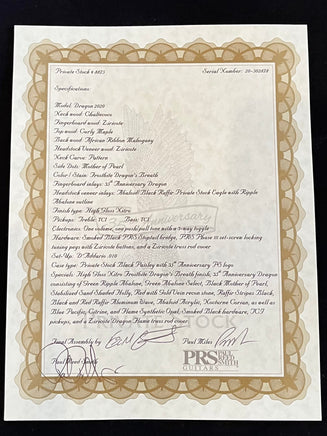 Private Stock # 8823 Serial Number: 20-302828
Specifications:
Model: Dragon 2020
Neck wood: Chaltecoco
Fingerboard wood: Ziricote
Top wood: Curly Maple
Back wood: African Ribbon Mahogany
Headstock Veneer wood: Ziricote
Neck Curve: Pattern
Side Dots: Mother of Pearl
Color / Stain: Frostbite Dragon's Breath
Fingerboard inlays: 35th Anniversary Dragon
Headstock veneer inlays: Abaluhi Black Raffir Private Stock Eagle with Ripple
Abalone outline
Finish type: High Gloss Nitro
Pickups: Treble: TCI Bass: TCI
Electronics: One volume, one push/pull tone with a 3-way toggle
Hardware: Smoked Black PRS Stoptail bridge, PRS Phase III set-screw locking
tuning pegs with Ziricote buttons, and a Ziricote truss rod cover
Set-Up: D'Addario .010
Case type: Private Stock Black Paisley with 35th Anniversary PS logo
Specials: High Gloss Nitro Frostbite Dragon's Breath finish, 35th Anniversary Dragon
consisting of Green Ripple Abalone, Green Abalone Select, Black Mother of Pearl,
Stabilized Sand Shaded Holly, Red with Gold Vein recon stone, Raffir Stripes Black,
Black and Red Raffir Aluminum Wave, Abaluhi Acrylic, Nocturne Corian, as well as
Blue Pacific, Citrine, and Flame Synthetic Opal, Smoked Black hardware, TCI
pickups, and a Ziricote Dragon Flame truss rod cover
Final Assembly by
Paul Miles
Paul Reed Smith
PRS PAUL REED SMITH
GUITARS